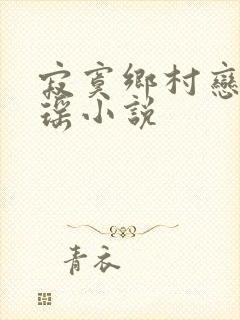 寂寞鄉村戀
瑤小說
青衣